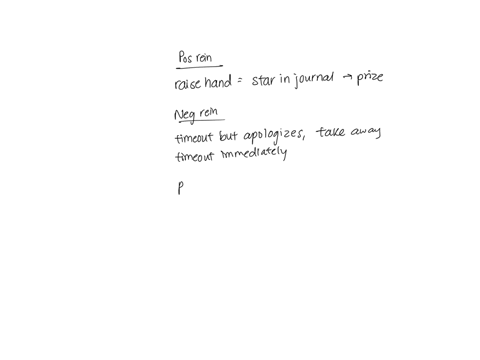 Pos rein
raise hand = star in journal → prize
Neg rein
timeout but apologizes, take away
timeout immediately
P